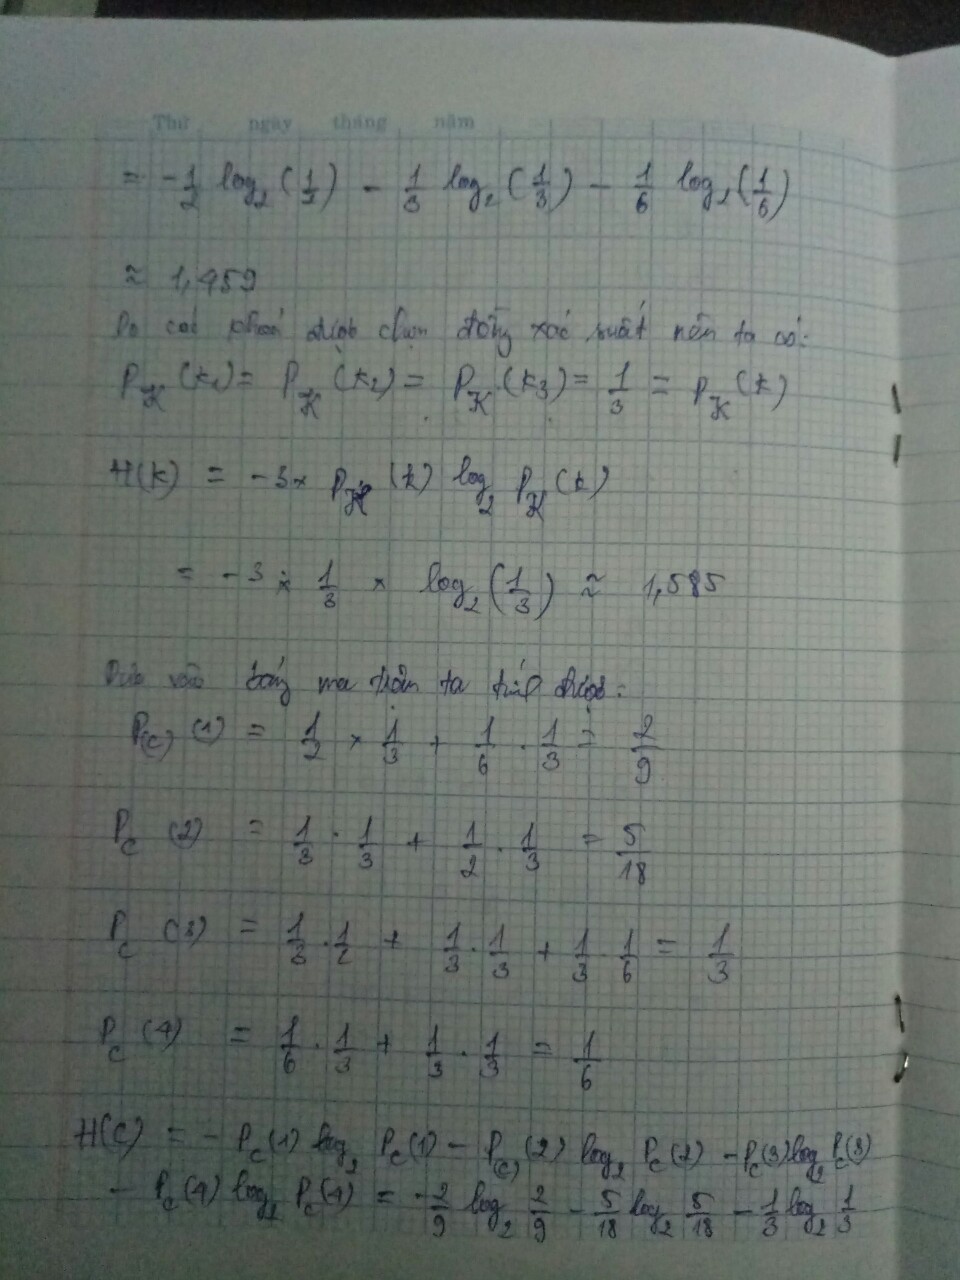 Thứ ngày tháng năm
= -1/2 log₂(1/2) - 1/3 log₂(1/3) - 1/6 log₂(1/6)
≈ 1,459
Do các khoá được chọn đồng xác suất nên ta có:
P_K(k₁) = P_K(k₂) = P_K(k₃) = 1/3 = P_K(k)
H(K) = -3 × P_K(k) log₂ P_K(k)
= -3 × 1/3 × log₂(1/3) ≈ 1,585
Dựa vào bảng ma trận ta tính được:
P_(C)(1) = 1/2 × 1/3 + 1/6 . 1/3 = 2/9
P_C(2) = 1/3 . 1/3 + 1/2 . 1/3 = 5/18
P_C(3) = 1/3 . 1/2 + 1/3 . 1/3 + 1/3 . 1/6 = 1/3
P_C(4) = 1/6 . 1/3 + 1/3 . 1/3 = 1/6
H(C) = - P_C(1) log₂ P_C(1) - P_(C)(2) log₂ P_C(2) - P_C(3) log₂ P_C(3)
- P_C(4) log₂ P_C(4) = -2/9 log₂ 2/9 - 5/18 log₂ 5/18 - 1/3 log₂ 1/3